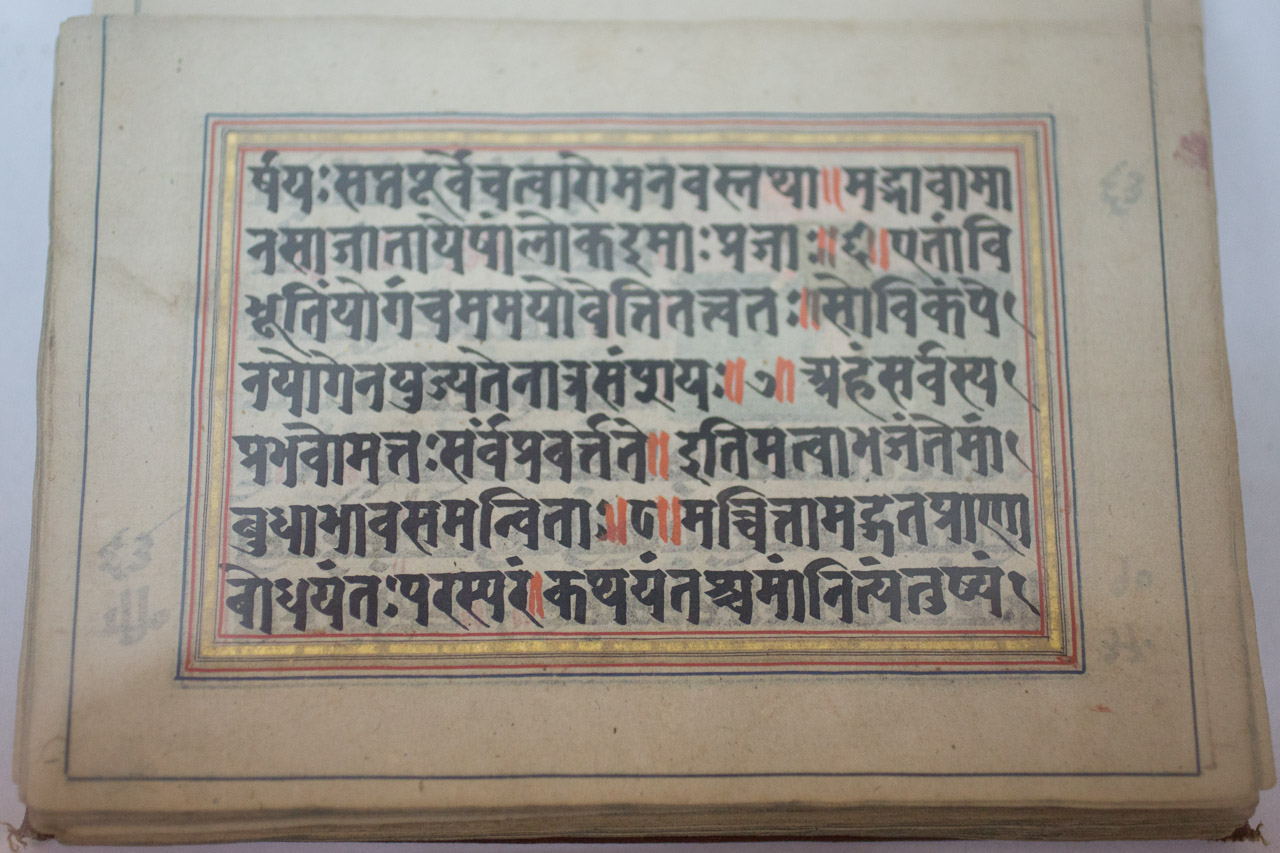 र्षयः सप्त पूर्वे चत्वारो मनवस्तथा ॥ मद्भावा मा
नसा जाता येषां लोक इमाः प्रजाः ॥ ६ ॥ एतां वि
भूतिं योगं च मम यो वेत्ति तत्त्वतः ॥ सो विकंपे
न योगेन युज्यते नात्र संशयः ॥ ७ ॥ अहं सर्वस्य
प्रभवो मत्तः सर्वं प्रवर्त्तते ॥ इति मत्वा भजंते मां
बुधा भावसमन्विताः ॥ ८ ॥ मच्चित्ता मद्गतप्राणा
बोधयंतः परस्परं ॥ कथयंतश्च मां नित्यं तुष्यं